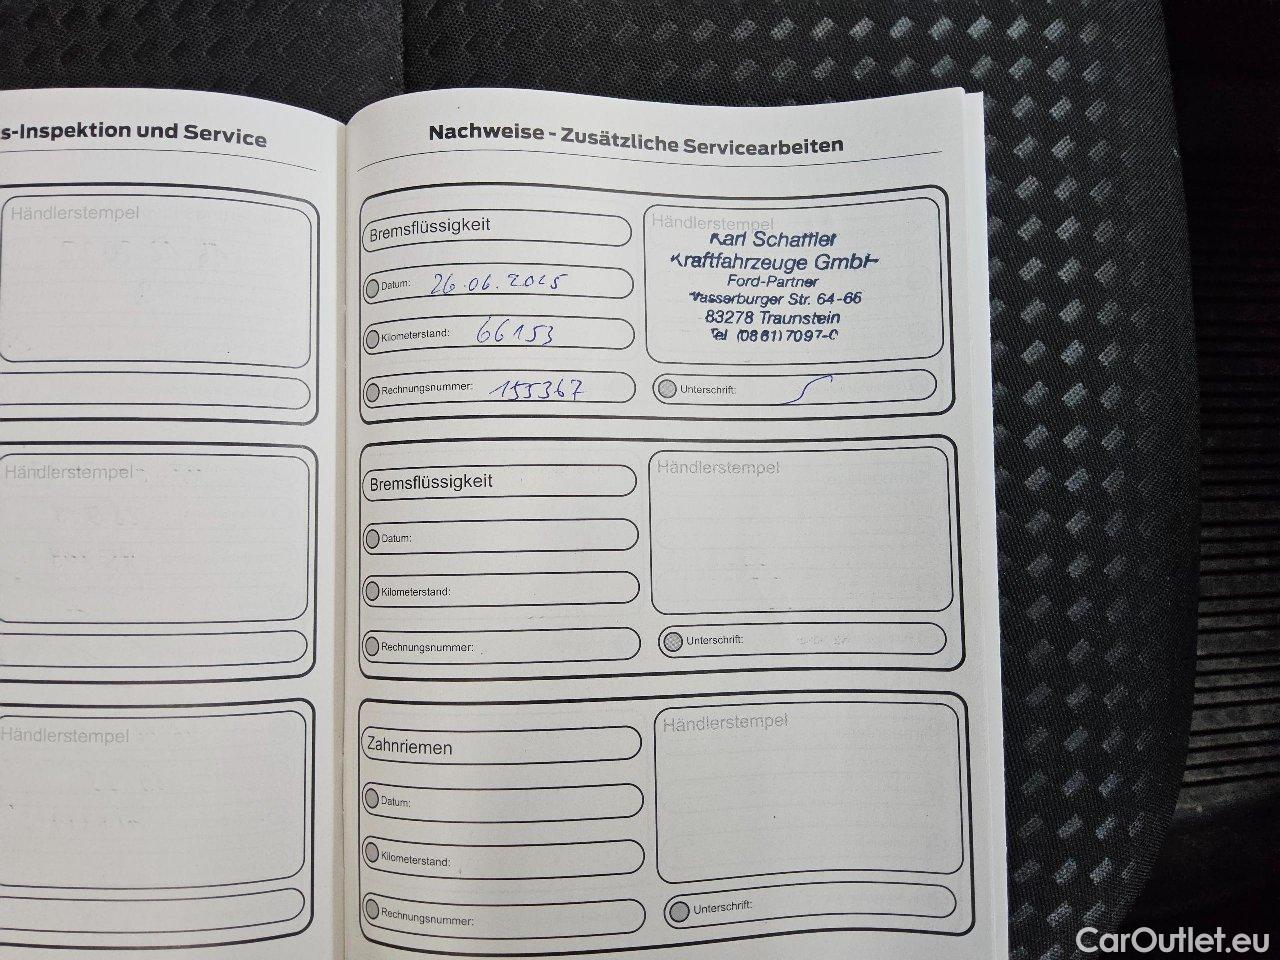 s-Inspektion und Service
Händlerstempel
Händlerstempel
Händlerstempel
Nachweise - Zusätzliche Servicearbeiten
Bremsflüssigkeit
Datum: 26.06.2025
Kilometerstand: 66153
Rechnungsnummer: 155367
Händlerstempel
Karl Schaffler
Kraftfahrzeuge GmbH
Ford-Partner
Wasserburger Str. 64-66
83278 Traunstein
Tel (0861) 7097-0
Unterschrift:
Bremsflüssigkeit
Datum:
Kilometerstand:
Rechnungsnummer:
Händlerstempel
Unterschrift:
Zahnriemen
Datum:
Kilometerstand:
Rechnungsnummer:
Händlerstempel
Unterschrift:
CarOutlet.eu